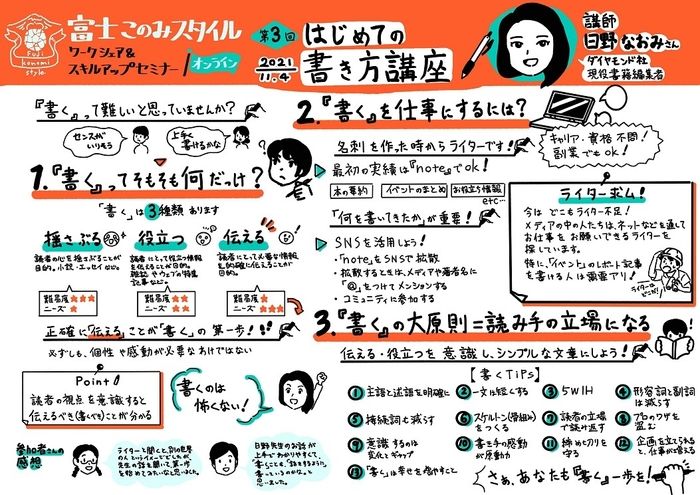 FUJI
Konomi
style
富士このみスタイル
ワークシェア&
スキルアップセミナー
オンライン
第3回
2021
11.4
はじめての
書き方講座
講師
日野なおみさん
ダイヤモンド社
現役書籍編集者
『書く』って難しいと思っていませんか?
センスが
いりそう
上手く
書けるかな
1.『書く』ってそもそも何だっけ?
「書く」は3種類あります
揺さぶる
読者の心を揺さぶることが
目的。小説・エッセイなど。
難易度
ニーズ
役立つ
読者にとって役立つ情報
を伝えることが目的。
雑誌やウェブの特集
記事など。
難易度
ニーズ
伝える
読者にとって必要な情報
を的確に伝えることが
目的。
難易度
ニーズ
正確に「伝える」ことが「書く」の第一歩!
必ずしも、個性や感動が必要なわけではない
Point
読者の視点を意識すると
伝えるべき(書くべき)ことが分かる
書くのは
怖くない!
参加者さんの
感想
2.『書く』を仕事にするには?
名刺を作った時からライターです!
最初の実績は『note』でok!
本の要約
イベントのまとめ
お役立ち情報
etc…
「何を書いてきたか」が重要!
SNSを活用しよう!
・「note」をSNSで拡散
・拡散するときは、メディアや著者名に
「@」をつけてメンションする
・コミュニティに参加する
キャリア・資格不問!
副業でもok!
ライター求ム!
今はどこもライター不足!
メディアの中の人たちは、ネットなどを通して
お仕事をお願いできるライターを
探しています。
特に、「イベント」のレポート記事
を書ける人は需要アリ!
ライターは
どこだ!
3.『書く』の大原則=読み手の立場になる
伝える・役立つを意識し、シンプルな文章にしよう!
【書くTIPS】
① 主語と述語を明確に
② 一文は短くする
③ 5W1H
④ 形容詞と副詞
は減らす
⑤ 接続詞も減らす
⑥ スケルトン(骨組み)
をつくる
⑦ 読者の立場
で読み返す
⑧ プロのワザを
盗む
⑨ 意識するのは
変化とギャップ
⑩ 書き手の感動
が原動力
⑪ 締め切りを
守る
⑫ 企画を立てられる
と、仕事が増える
⑬ 「書く」は幸せを増やすこと
さぁ、あなたも『書く』一歩を!